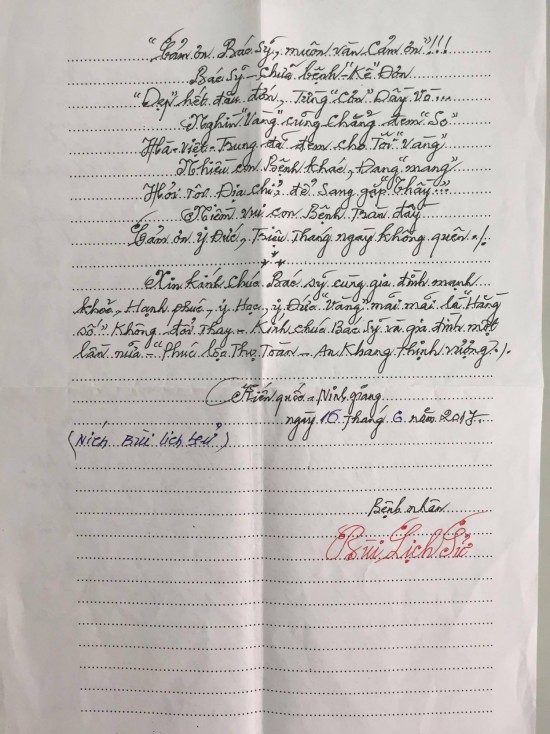 "Cảm ơn Bác Sỹ, muôn vàn cảm ơn"!!!
Bác Sỹ - Chữa bệnh "Kê" Đơn
"Dẹp" hết đau đớn, Từng "Cơn" Dầy Vò...
Nghìn "Vàng" cũng chẳng đem "So"
Hà Việt Trung đã đem cho Tôi "Vàng"
Nhiều con Bệnh khác, Đang "mang"
Hỏi Tôi Địa Chỉ, để Sang gặp "Thầy"...
Niềm vui con Bệnh Tràn đầy
Cảm ơn y Đức, Triệu Tháng ngày không quên ./.
Xin kính chúc Bác sỹ cùng gia đình mạnh
khỏe, Hạnh phúc, y Học, y Đức "Vàng" mãi mãi là "Hằng
số" Không đổi Thay - Kính chúc Bác Sỹ và gia đình một
lần nữa - "Phúc Lộc Thọ Toàn - An Khang Thịnh vượng" ./.
Kiến quốc - Ninh giang
ngày 16 Tháng 6 năm 2017
(Ních Bùi lịch sử)
Bệnh nhân
Bùi Lịch Sử